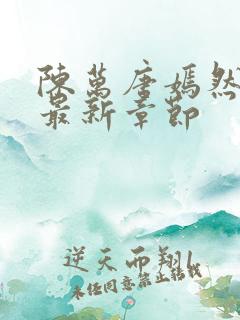 陳萬唐嫣然
最新章節
逆天而翔
未经同意禁止转载